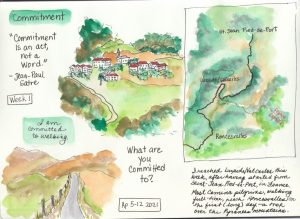 Commitment
"Commitment
is an act,
not a
Word."
- Jean-Paul
Satre
Week 1
I am
committed
to walking.
What are
you
Committed
to?
Ap 5-12 2021
St. Jean Pied-de-Port
Roncesvalles
I reached Urepel/Valcarlos this
week, after having started from
Saint-Jean Pied-de-Port, in France.
Most Camino pilgrims, walking
full-time, reach Roncesvalles on
the first (long) day - a route
over the Pyrenees Mountains.